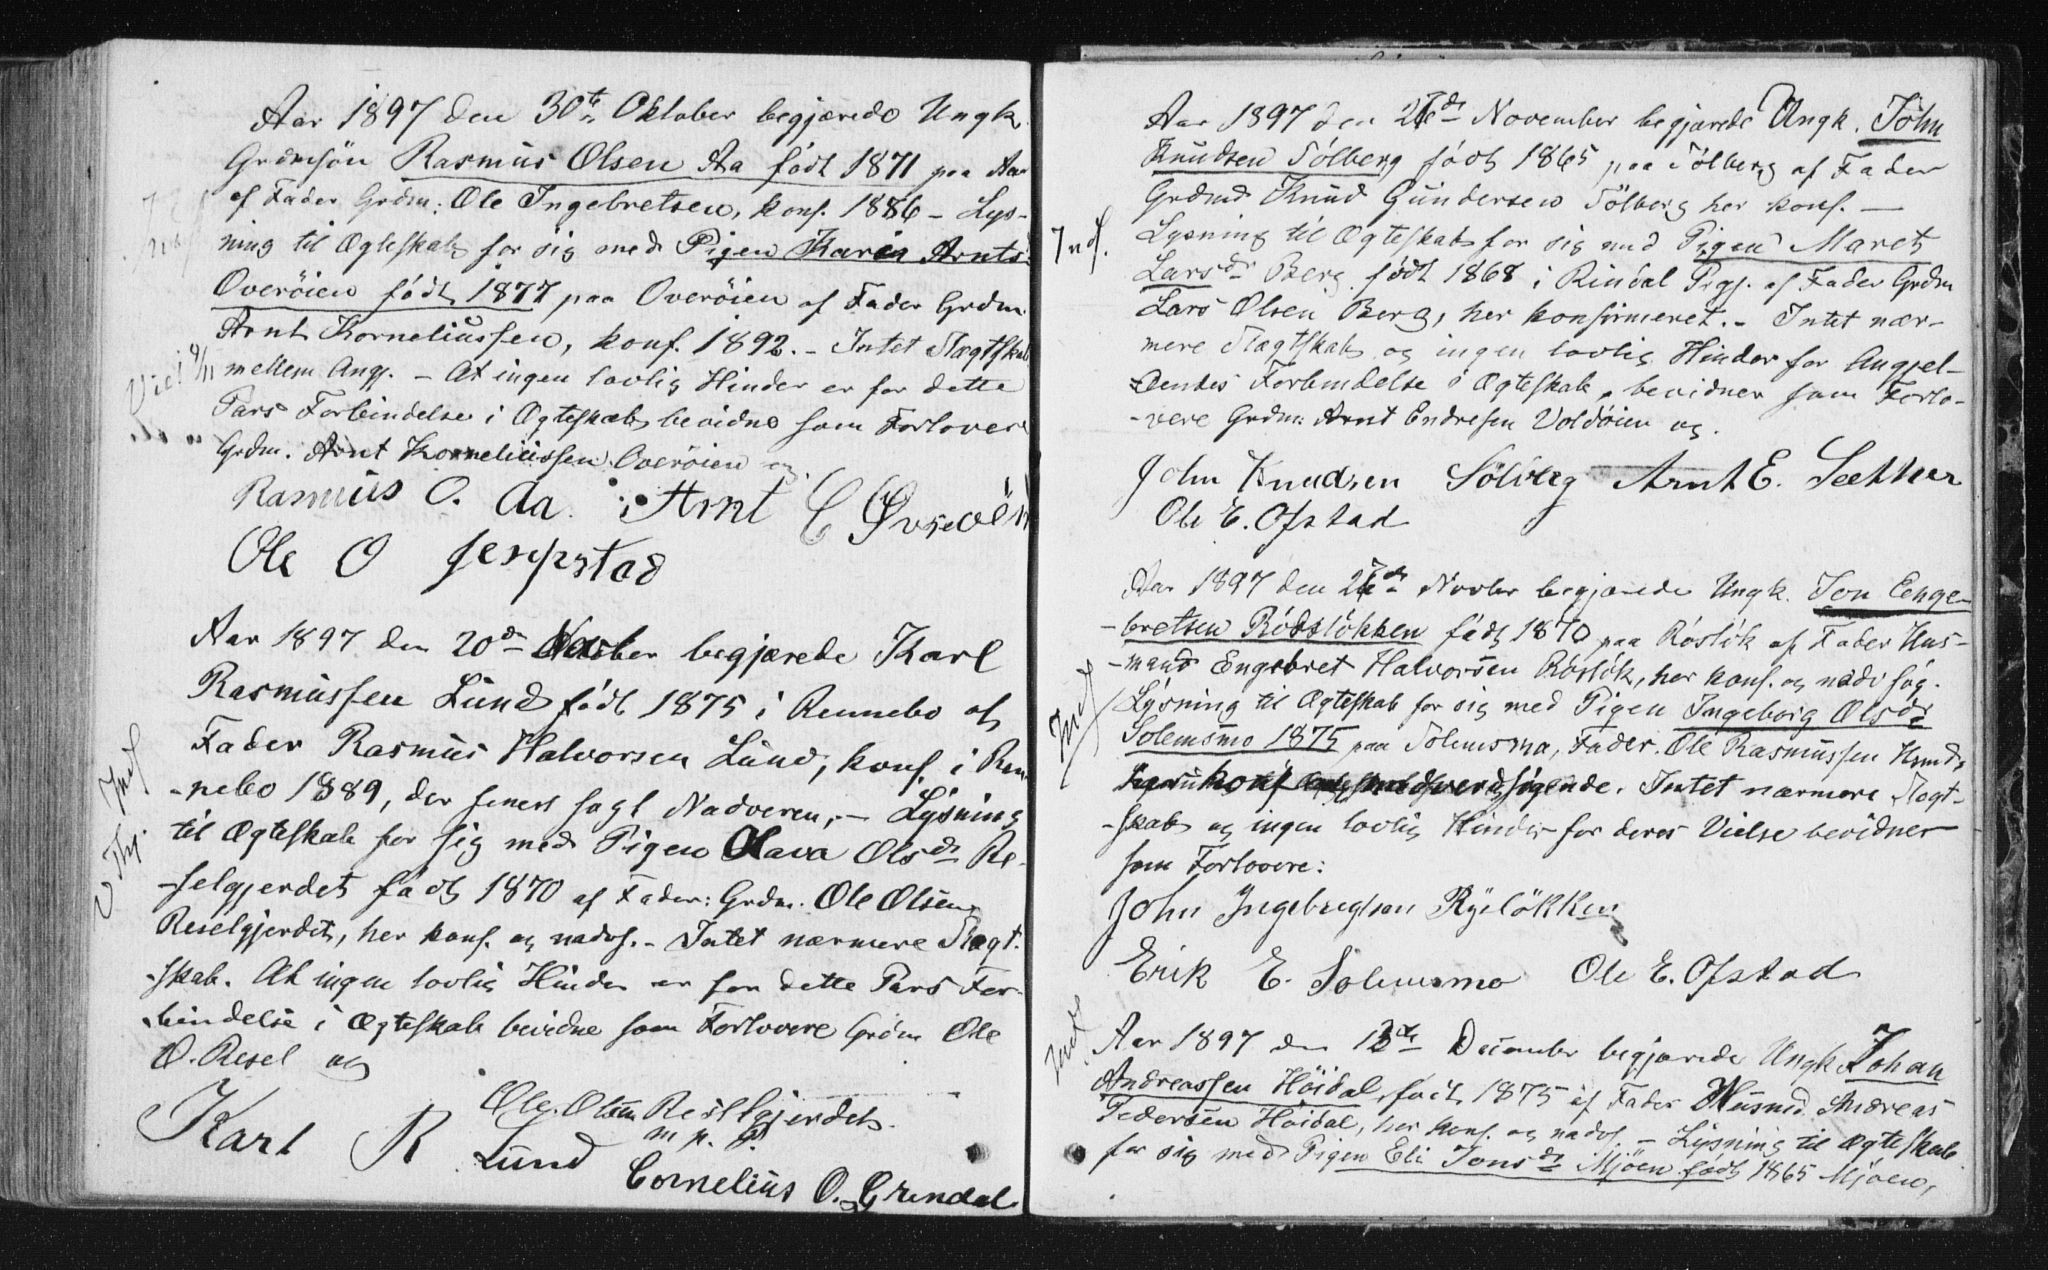 Aar 1897 den 30te Oktober begjærede Ungk.
Grdmsön Rasmus Olsen Aa födt 1871 paa Aa
af Fader Grdm: Ole Ingebretsen, konf. 1886 - Lys-
ning til Ægteskab for sig med Pigen Karen Arntsd
Overöien födt 1877 paa Overöien af Fader Grdm.
Arnt Korneliussen, konf. 1892. - Intet Slægtskab
mellem Angj. - At ingen lovlig Hinder er for dette
Pars Forbindelse i Ægteskab bevidne som Forlovere
Grdm. Arnt Korneliussen Overöien og
Rasmus O. Aa. Arnt C Øvreöin
Ole O Jerpstad
Aar 1897 den 20de Novber begjærede Karl
Rasmussen Lund födt 1875 i Rennebo af
Fader Rasmus Halvorsen Lund, konf. i Ren-
-nebo 1889, der senest sögt Nadveren, - Lysning
til Ægteskab for sig med Pigen Olava Olsdr Re-
-selgjerdet födt 1870 af Fader: Grdm. Ole Olsen
Reselgjerdet, her konf. og nadvs. - Intet nærmere Slægt-
-skab. At ingen lovlig Hinder er for dette Pars For-
bindelse i Ægteskab bevidne som Forlovere Grdm Ole
O. Resel og
Ole Olsen Resellgjerdet
m. p. P.
Karl R Lund
Cornelius O. Grendal
Aar 1897 den 27de November begjærede Ungk. John
Knudsen Sölberg födt 1865 paa Sölberg af Fader
Grdmd Knud Gundersen Sölberg her konf. -
Indf.
Lysning til Ægteskab for sig med Pigen Maret
Larsdr Berg födt 1868 i Rindal Prgj. af Fader Grdm
Lars Olsen Berg, her konfirmeret. - Intet nær-
mere Slagtskab og ingen lovlig Hinder for Angjel-
dendes Forbindelse i Ægteskab, bevidner som Forlo-
-vere Grdm: Arnt Endresen Voldöien og
John Knudsen Sölberg Arnt E. Sæther
Ole E. Ofstad
Aar 1897 den 27de Novbr begjærede Ungk. Jon Enge-
-bretsen Röslökken födt 1870 paa Röslök af Fader Hus-
-mand Engebret Halvorsen Röslök, her konf. og nadv sög.
Indf
Lysning til Ægteskab for sig med Pigen Ingeborg Olsdr
Solemsmo 1875 paa Solemsmo, Fader. Ole Rasmussen Husmd,
konf. nadverdsögende. Intet nærmere Slægt-
-skab og ingen lovlig Hinder for deres Vielse bevidner
som Forlovere:
John Ingebregtsen Rÿslökken
Erik E. Solemsmo Ole E. Ofstad
Indf
Aar 1897 den 13de December begjærede Ungk. Johan
Andreassen Höidal, födt 1875 af Fader Husmd. Andreas
Pedersen Höidal, her konf. og nadvs. - Lysning til Ægteskab
for sig med Pigen Eli Jonsdr Mjöen födt 1865 Mjöen,